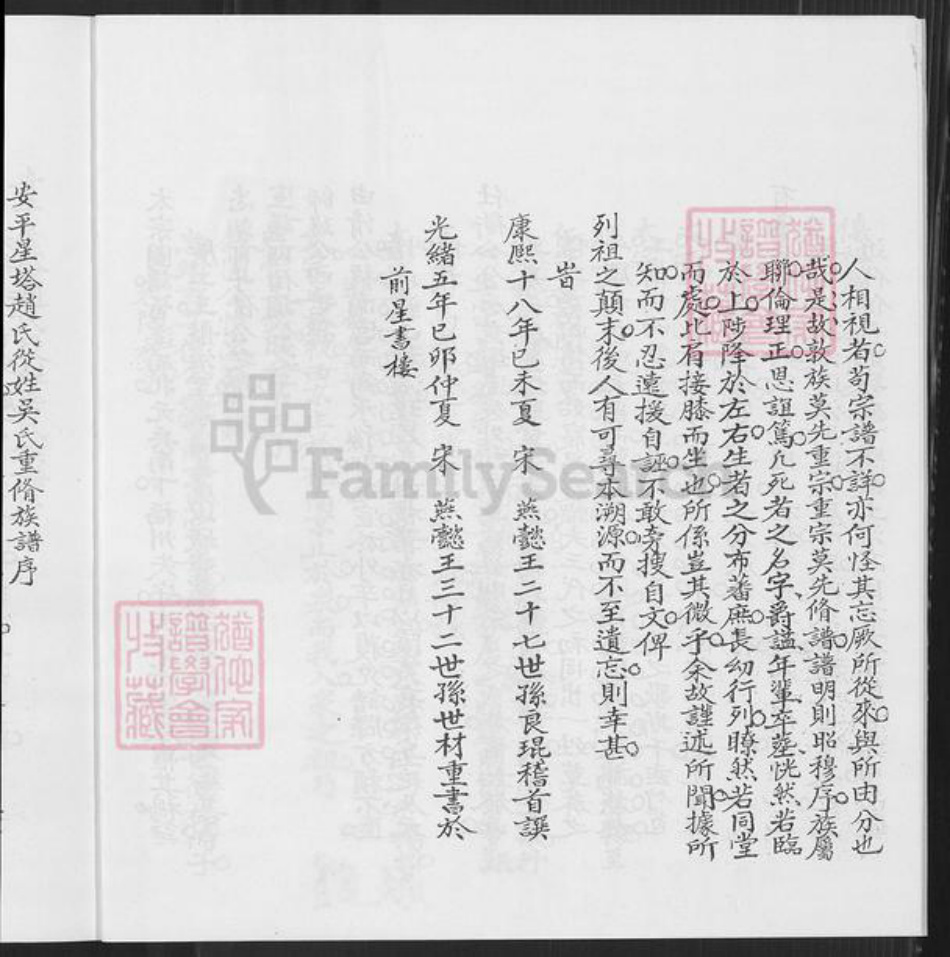 人相視若苟宗譜不詳亦何怪其忘厥所從來與所由分也
哉是故敦族莫先重宗重宗莫先脩譜譜明則昭穆序族屬
聯倫理正恩誼篤凡死者之名字爵諡年輩卒塟恍然若臨
於上陟降於左右生者之分布蕃庶長幼行列瞭然若同堂
而處比肩接膝而坐也所係豈其微乎余故謹述所聞據所
知而不忍遠援自誣不敢旁搜自文俾
列祖之顛末後人有可尋本溯源而不至遺忘則幸甚
旹
康熙十八年己未夏 宋 燕懿王二十七世孫良琨稽首譔
光緒五年己卯仲夏 宋 燕懿王三十二世孫世材重書於
前星書樓
安平星塔趙氏從姓吳氏重脩族譜序
譜學會
收藏
FamilySearch